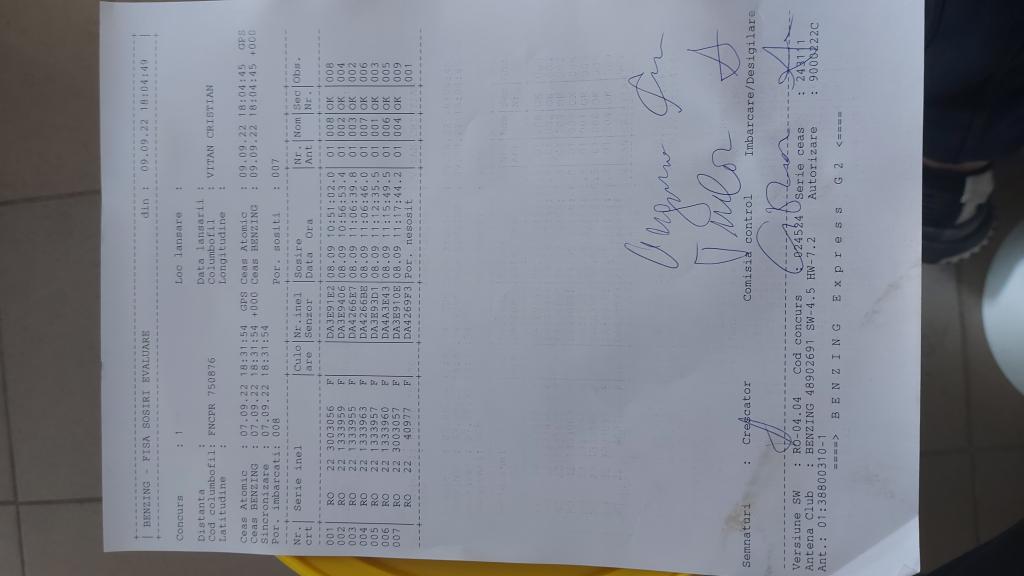 BENZING - FISA SOSIRI EVALUARE din : 09.09.22 18:04:49
Concurs : 1 Loc lansare :
Distanta : Data lansarii :
Cod columbofil: FNCPR 750876 Columbofil : VITAN CRISTIAN
Latitudine : Longitudine :
Ceas Atomic : 07.09.22 18:31:54 GPS Ceas Atomic : 09.09.22 18:04:45 GPS
Ceas BENZING : 07.09.22 18:31:54 +000 Ceas BENZING : 09.09.22 18:04:45 +000
Sincronizare : 07.09.22 18:31:54
Por. imbarcati: 008 Por. sositi : 007
Nr. Serie inel Culo Nr.inel Sosire Nr. Nom Sec Obs.
crt are Senzor Data Ora Ant Nr.
001 RO 22 3003056 F DA3E91E2 08.09 10:51:02.0 01 008 OK 008
002 RO 22 1333959 F DA3E9406 08.09 10:56:53.4 01 002 OK 004
003 RO 22 1333955 F DA4266E7 08.09 11:06:39.8 01 003 OK 002
004 RO 22 1333963 F DA4266BE 08.09 11:06:46.0 01 007 OK 006
005 RO 22 1333957 F DA3E93D1 08.09 11:12:35.5 01 001 OK 003
006 RO 22 1333960 F DA4A3E43 08.09 11:15:49.5 01 006 OK 005
007 RO 22 3003057 F DA3E910E 08.09 11:17:44.2 01 004 OK 009
RO 22 40977 F DA4269F3 Por. nesosit 001
Semnaturi : Crescator Comisia control Imbarcare/Desigilare
Versiune SW : RO-04.04 Cod concurs : 024524 Serie ceas : 243111
Antena Club : BENZING 48902691 SW-4.5 HW-7.2 Autorizare : 9000222C
Ant.: 01:38800310-1
====> B E N Z I N G E x p r e s s G 2 <====